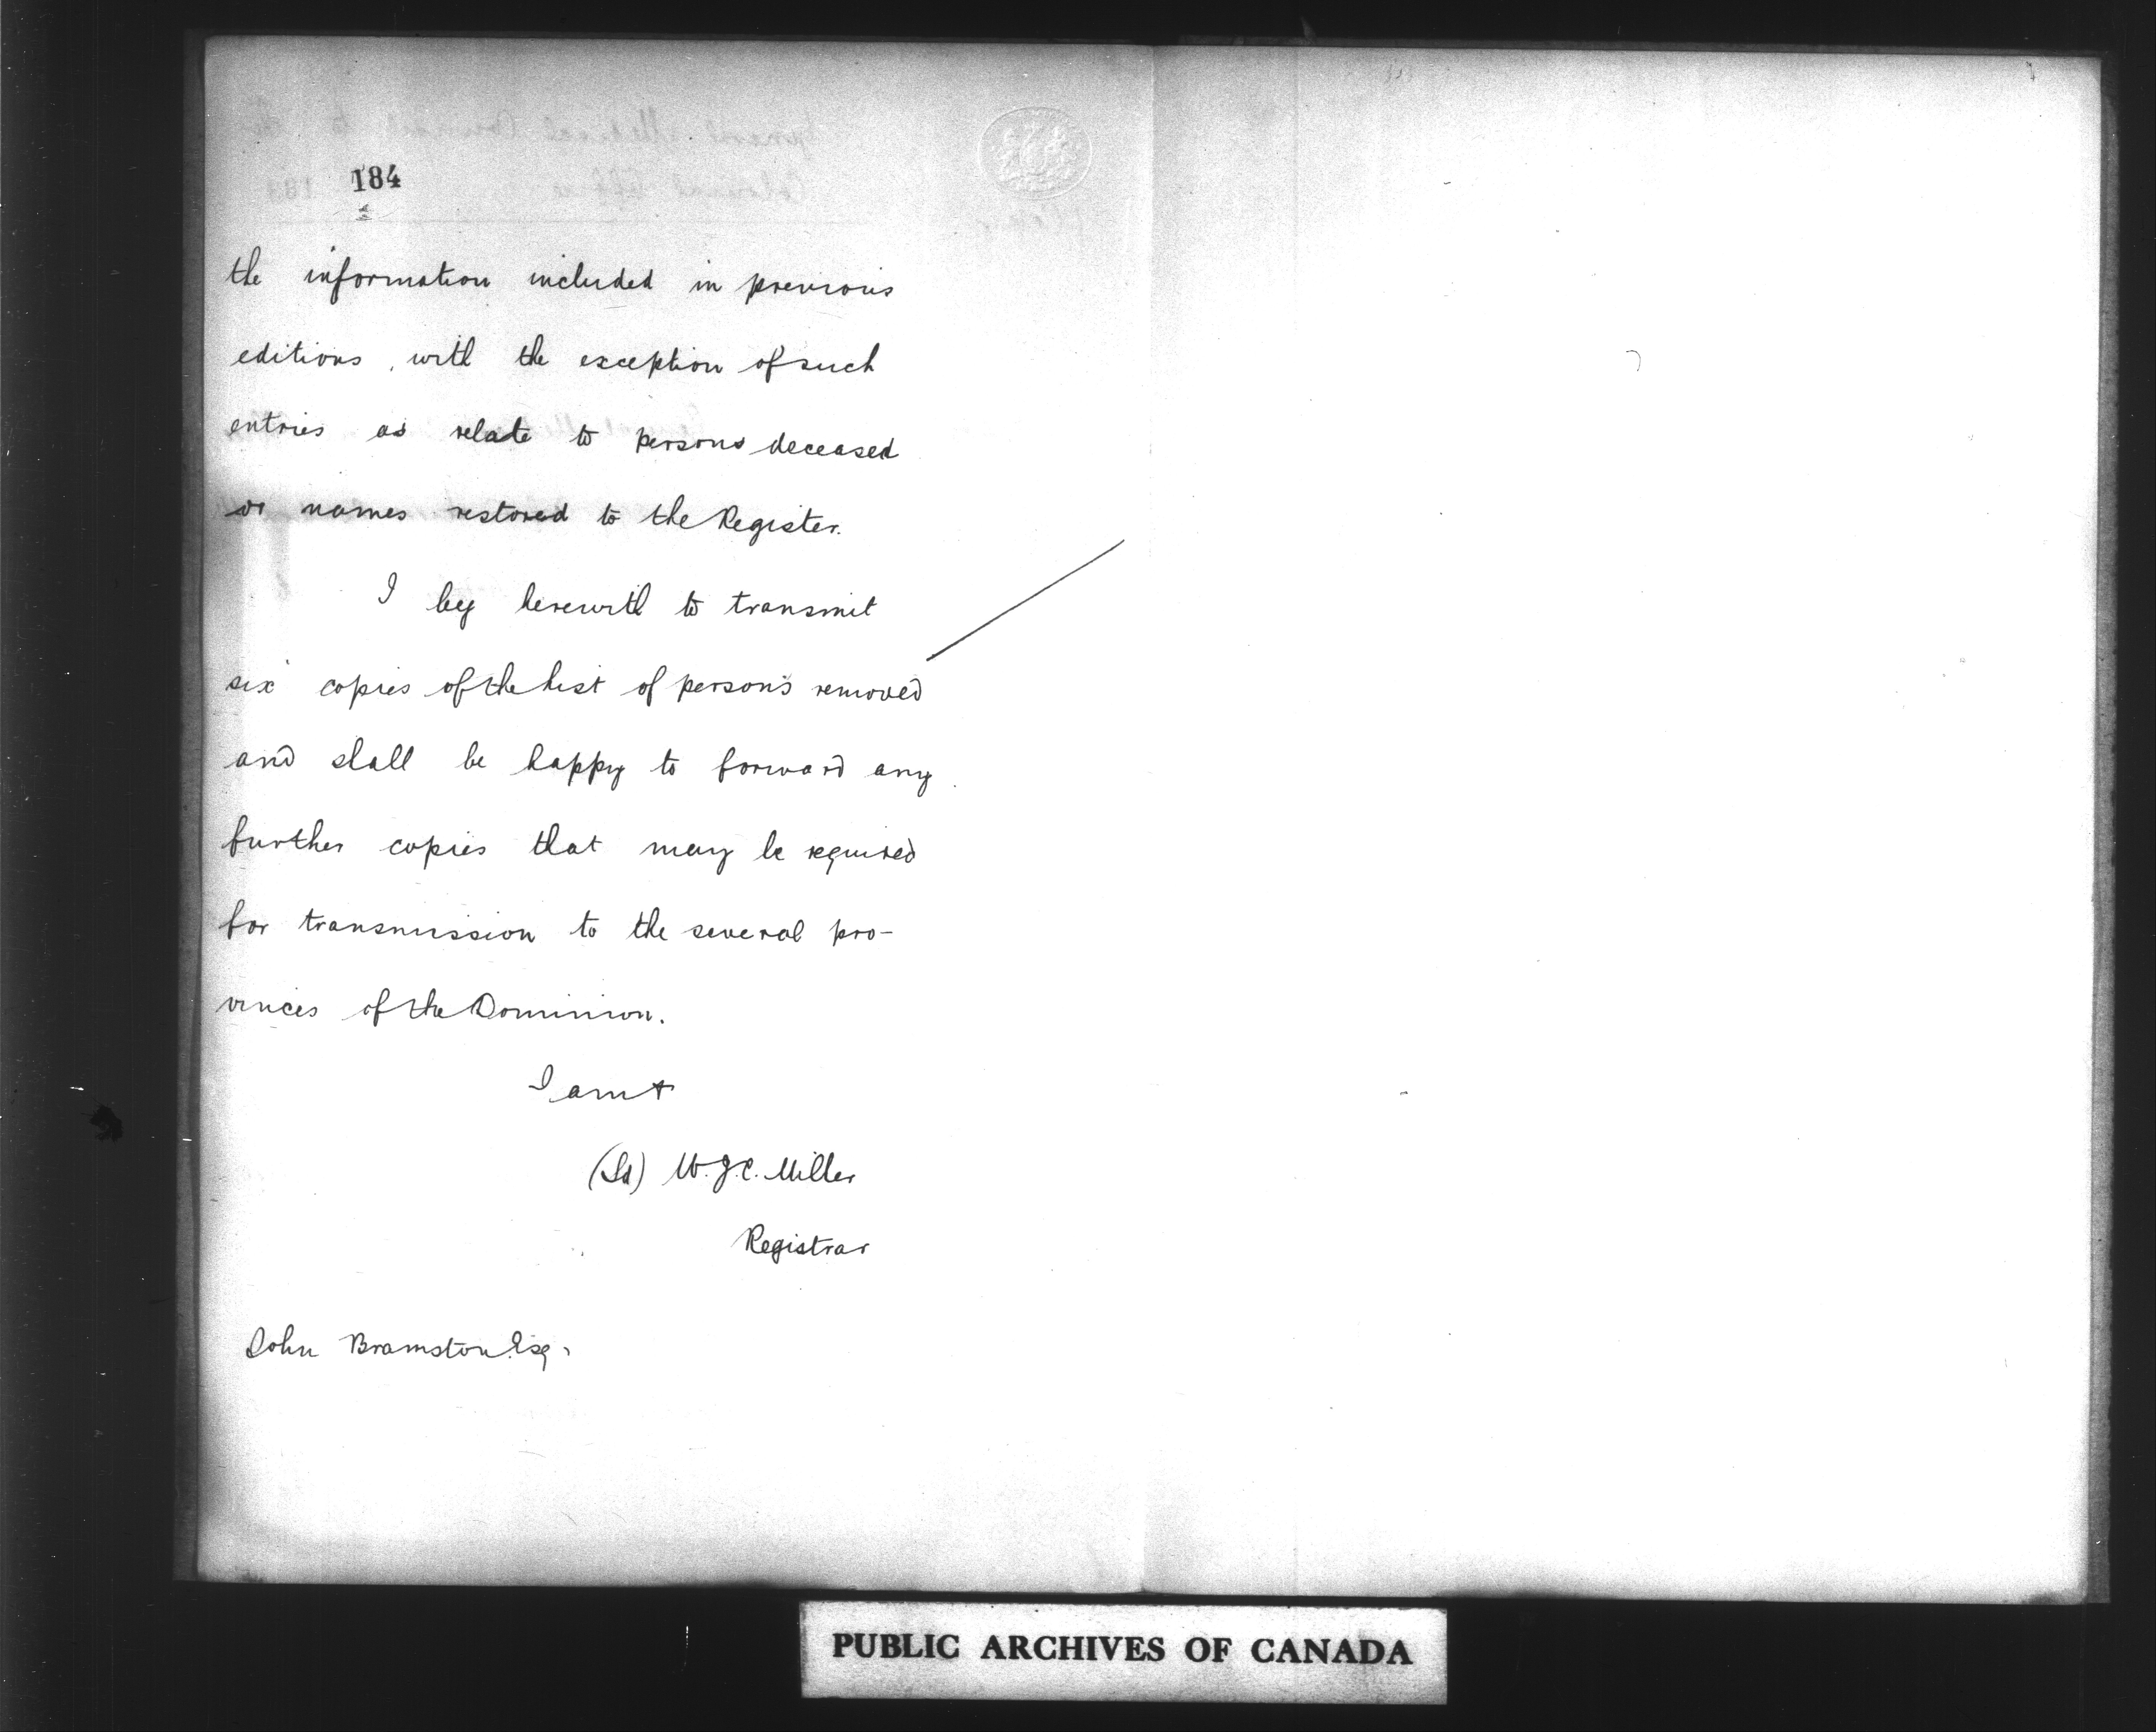 184
the information included in previous
editions, with the exception of such
entries as relate to persons deceased
or names restored to the Register.
I beg herewith to transmit
six copies of the List of persons removed
and shall be happy to forward any
further copies that may be required
for transmission to the several pro-
vinces of the Dominion.
I am &
(Sd) W. J. C. Miller
Registrar
John Bramston Esq.
PUBLIC ARCHIVES OF CANADA